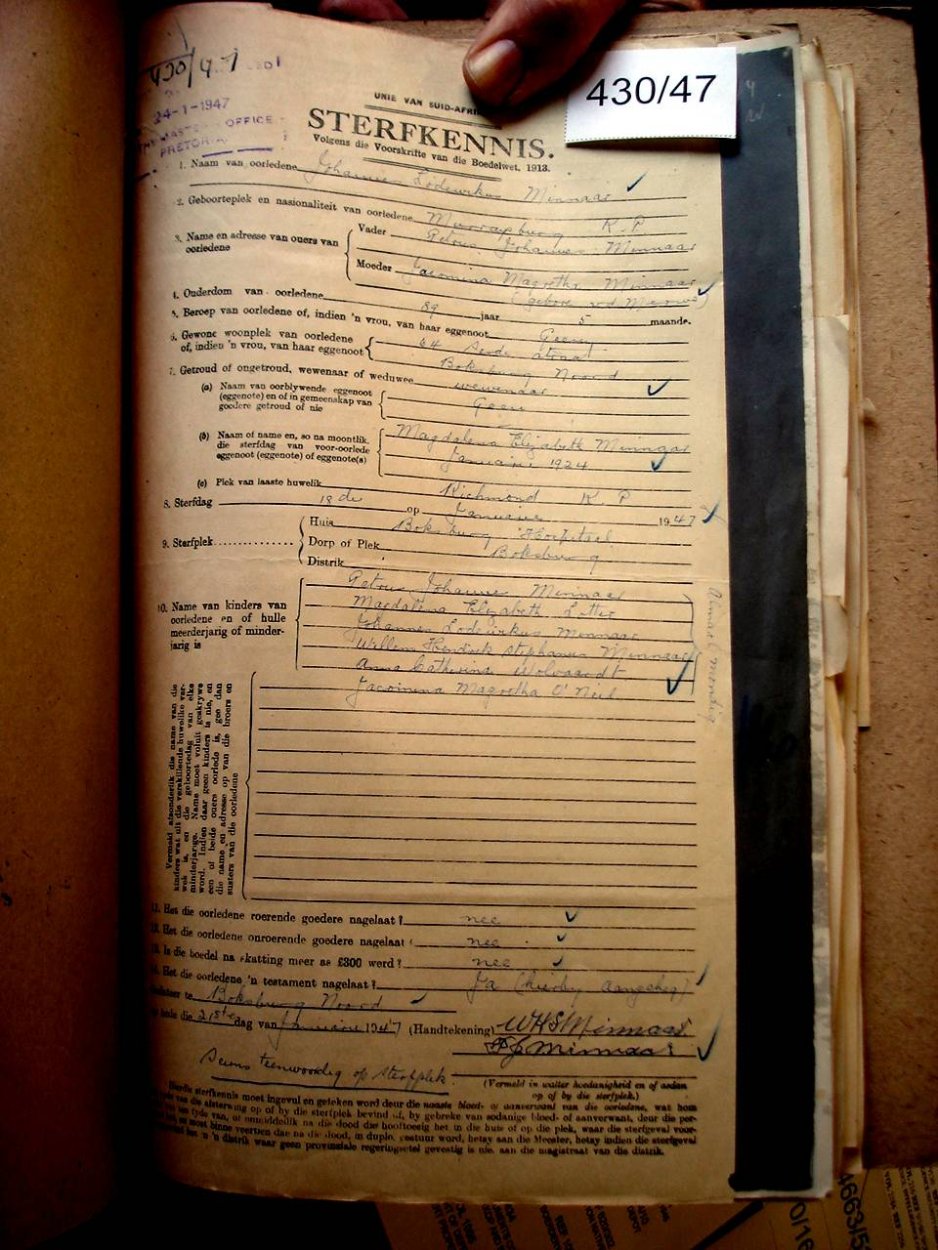 430/47
430/47
24-1-1947
MASTERS OFFICE
PRETORIA
UNIE VAN SUID-AFRI
STERFKENNIS.
Volgens die Voorskrifte van die Boedelwet, 1913.
1. Naam van oorledene Johannes Lodewikus Minnaar
2. Geboorteplek en nasionaliteit van oorledene Murraysburg K.P
3. Name en adresse van ouers van oorledene
Vader Petrus Johannes Minnaar
Moeder Jacomina Magretha Minnaar
(gebore v d Merwe)
4. Ouderdom van oorledene 89 jaar 5 maande.
5. Beroep van oorledene of, indien 'n vrou, van haar eggenoot Geen
6. Gewone woonplek van oorledene of, indien 'n vrou, van haar eggenoot 64 straat
Boksburg Noord
7. Getroud of ongetroud, wewenaar of weduwee wewenaar
(a) Naam van oorblywende eggenoot
(eggenote) en of in gemeenskap van
goedere getroud of nie
Geen
(b) Naam of name en, so na moontlik
die sterfdag van voor-oorlede
eggenoot (eggenote) of eggenote(s)
Magdalena Elizabeth Minnaar
Januarie 1924
(c) Plek van laaste huwelik Richmond K.P
8. Sterfdag 18de op Januarie 1947
9. Sterfplek
Huis Boksburg Hospitaal
Dorp of Plek Boksburg
Distrik
10. Name van kinders van
oorledene en of hulle
meerderjarig of minder-
jarig is
Petrus Johannes Minnaar
Magdalena Elizabeth Lotter
Johannes Lodewikus Minnaar
Willem Hendrik Stephanus Minnaar
Anna Catherina Wolvaardt
Jacomina Magretha O'Niel
Almal mondig
Vermeld afsonderlik die name van die
kinders wat uit die verskillende huwelike ver-
wek is, en die geboortedag van elke
minderjarige. Name moet voluit geskrywe
word. Indien daar geen kinders is nie, en
een of beide ouers oorlede is, gee dan
die name en adresse op van die broers en
susters van die oorledene
11. Het die oorledene roerende goedere nagelaat? nee
12. Het die oorledene onroerende goedere nagelaat? nee
13. Is die boedel na skatting meer as £300 werd? nee
14. Het die oorledene 'n testament nagelaat? Ja (hierby aangeheg)
te Boksburg Noord
hede die 21ste dag van Januarie 1947 (Handtekening) WHS Minnaar
PJ Minnaar
Seuns teenwoordig op sterfplek.
(Vermeld in watter hoedanigheid en of aedan
op of by die sterfplek.)
Hierdie sterfkennis moet ingevul en geteken word deur die naaste bloed- of aanverwant van die oorledene, wat hom
ten tyde van die afsterwing op of by die sterfplek bevind of, by gebreke van sodanige bloed- of aanverwant, deur die per-
of onmiddellik na die dood die hooftoesig het in die huis of op die plek, waar die sterfgeval voor-
en moet binne veertien dae na die dood, in duplo, gestuur word, hetsy aan die Meester, hetsy indien die sterfgeval
in 'n distrik waar geen provinsiale regeringsetel gevestig is nie, aan die magistraat van die distrik.
4663/5